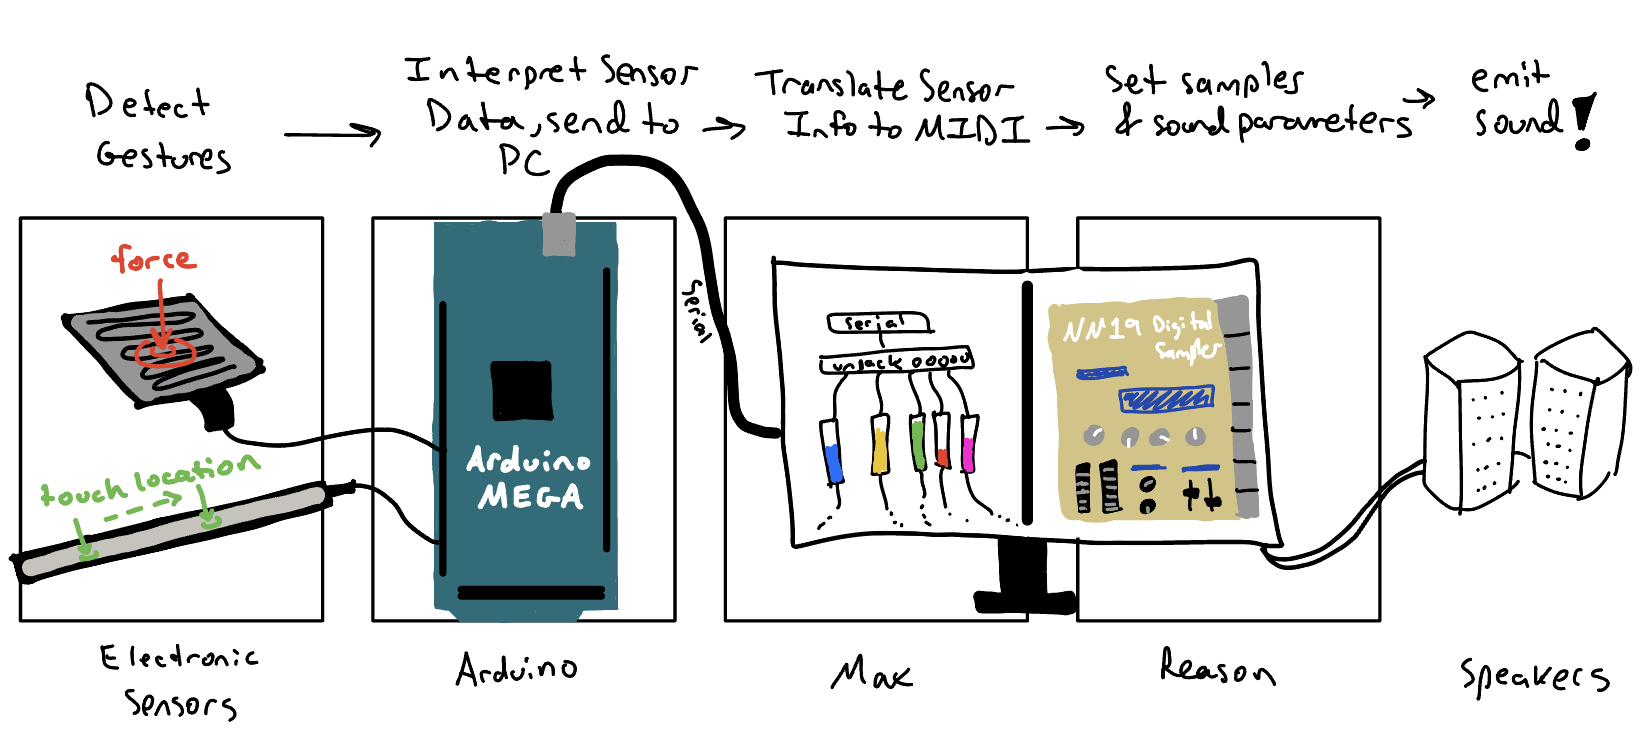 Detect
Gestures
Interpret Sensor
Data, send to
PC
Translate Sensor
Info to MIDI
Set samples
& sound parameters
emit
sound!
force
touch location
Arduino
MEGA
Serial
serial
unpack 00000
NN19 Digital
Sampler
Electronic
Sensors
Arduino
Max
Reason
Speakers